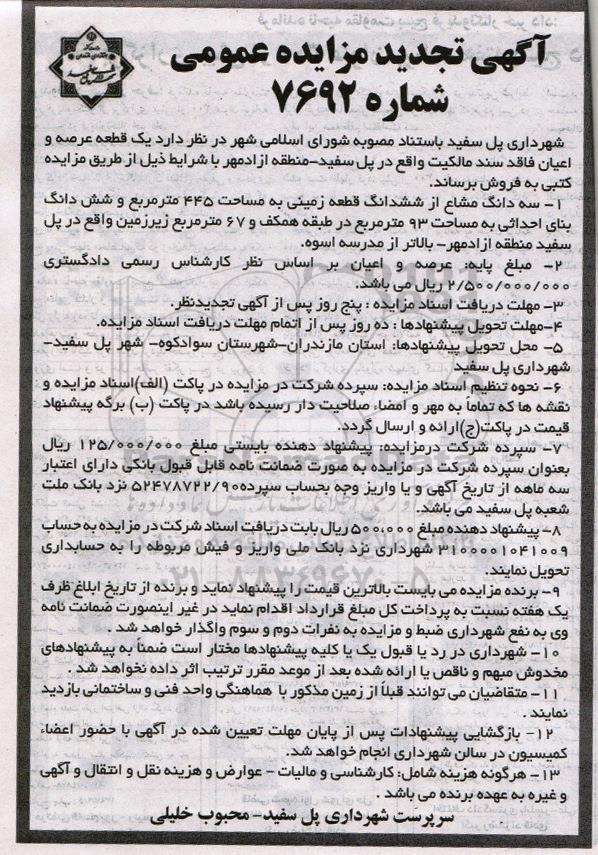 آگهی تجدید مزایده عمومی
شماره ۷۶۹۲
شهرداری پل سفید باستناد مصوبه شورای اسلامی شهر در نظر دارد یک قطعه عرصه و
اعیان فاقد سند مالکیت واقع در پل سفید-منطقه ازادمهر با شرایط ذیل از طریق مزایده
کتبی به فروش برساند.
۱- سه دانگ مشاع از ششدانگ قطعه زمینی به مساحت ۴۴۵ مترمربع و شش دانگ
بنای احداثی به مساحت ۹۳ مترمربع در طبقه همکف و ۶۷ مترمربع زیرزمین واقع در پل
سفید منطقه ازادمهر- بالاتر از مدرسه اسوه.
۲- مبلغ پایه: عرصه و اعیان بر اساس نظر کارشناس رسمی دادگستری
۲/۵۰۰/۰۰۰/۰۰۰ ریال می باشد.
۳- مهلت دریافت اسناد مزایده : پنج روز پس از آگهی تجدیدنظر.
۴-مهلت تحویل پیشنهادها : ده روز پس از اتمام مهلت دریافت اسناد مزایده.
۵- محل تحویل پیشنهادها: استان مازندران-شهرستان سوادکوه- شهر پل سفید-
شهرداری پل سفید
۶- نحوه تنظیم اسناد مزایده: سپرده شرکت در مزایده در پاکت (الف)اسناد مزایده و
نقشه ها که تماماً به مهر و امضاء صلاحیت دار رسیده باشد در پاکت (ب) برگه پیشنهاد
قیمت در پاکت(ج)ارائه و ارسال گردد.
۷- سپرده شرکت درمزایده: پیشنهاد دهنده بایستی مبلغ ۱۲۵/۰۰۰/۰۰۰ ریال
بعنوان سپرده شرکت در مزایده به صورت ضمانت نامه قابل قبول بانکی دارای اعتبار
سه ماهه از تاریخ آگهی و یا واریز وجه بحساب سپرده۵۲۴۷۸۷۲۲/۹۰ نزد بانک ملت
شعبه پل سفید می باشد.
۸- پیشنهاد دهنده مبلغ ۵۰۰،۰۰۰ ریال بابت دریافت اسناد شرکت در مزایده به حساب
۳۱۰۰۰۰۱۰۴۱۰۰۹ شهرداری نزد بانک ملی واریز و فیش مربوطه را به حسابداری
تحویل نمایند.
۹- برنده مزایده می بایست بالاترین قیمت را پیشنهاد نماید و برنده از تاریخ ابلاغ ظرف
یک هفته نسبت به پرداخت کل مبلغ قرارداد اقدام نماید در غیر اینصورت ضمانت نامه
وی به نفع شهرداری ضبط و مزایده به نفرات دوم و سوم واگذار خواهد شد .
۱۰- شهرداری در رد یا قبول یک یا کلیه پیشنهادها مختار است ضمناً به پیشنهادهای
مخدوش مبهم و ناقص یا ارائه شده بعد از موعد مقرر ترتیب اثر داده نخواهد شد .
۱۱- متقاضیان می توانند قبلاً از زمین مذکور با هماهنگی واحد فنی و ساختمانی بازدید
نمایند .
۱۲- بازگشایی پیشنهادات پس از پایان مهلت تعیین شده در آگهی با حضور اعضاء
کمیسیون در سالن شهرداری انجام خواهد شد.
۱۳- هرگونه هزینه شامل: کارشناسی و مالیات - عوارض و هزینه نقل و انتقال و آگهی
و غیره به عهده برنده می باشد .
سرپرست شهرداری پل سفید- محبوب خلیلی